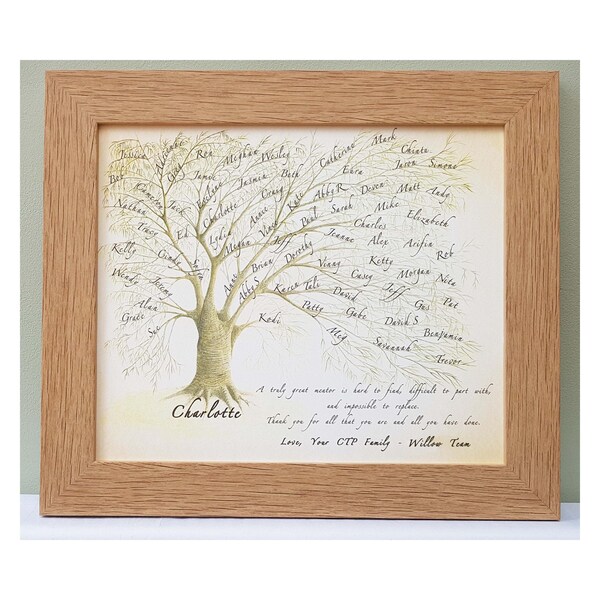 Jessica Adrienne Greg Ren Meghan Wesley Catherine Mark Chinta
Bet Jamie Jasmin Beth Ezra Jason Simone
Cameron Jack Emeline Craig Abby R Devon Matt Andy
Nathan Ed Charlotte Annie Kate Sarah Mike Elizabeth
Tracy Lydia Vince Paul Charles
Kelly Cindy Megan Jeff Jeanne Alex Arifin Rob
Wendy Jeremy Brian Dorothy Vinny Kitty Morgan Nita
Alan Abby S Karen Tali Casey Jeff Pat
Grace David Gus
Sue Kodi Patty Gabe David S Benjamin
Meg Savannah Trevor
Charlotte
A truly great mentor is hard to find, difficult to part with,
and impossible to replace.
Thank you for all that you are and all you have done.
Love, Your CTP Family - Willow Team